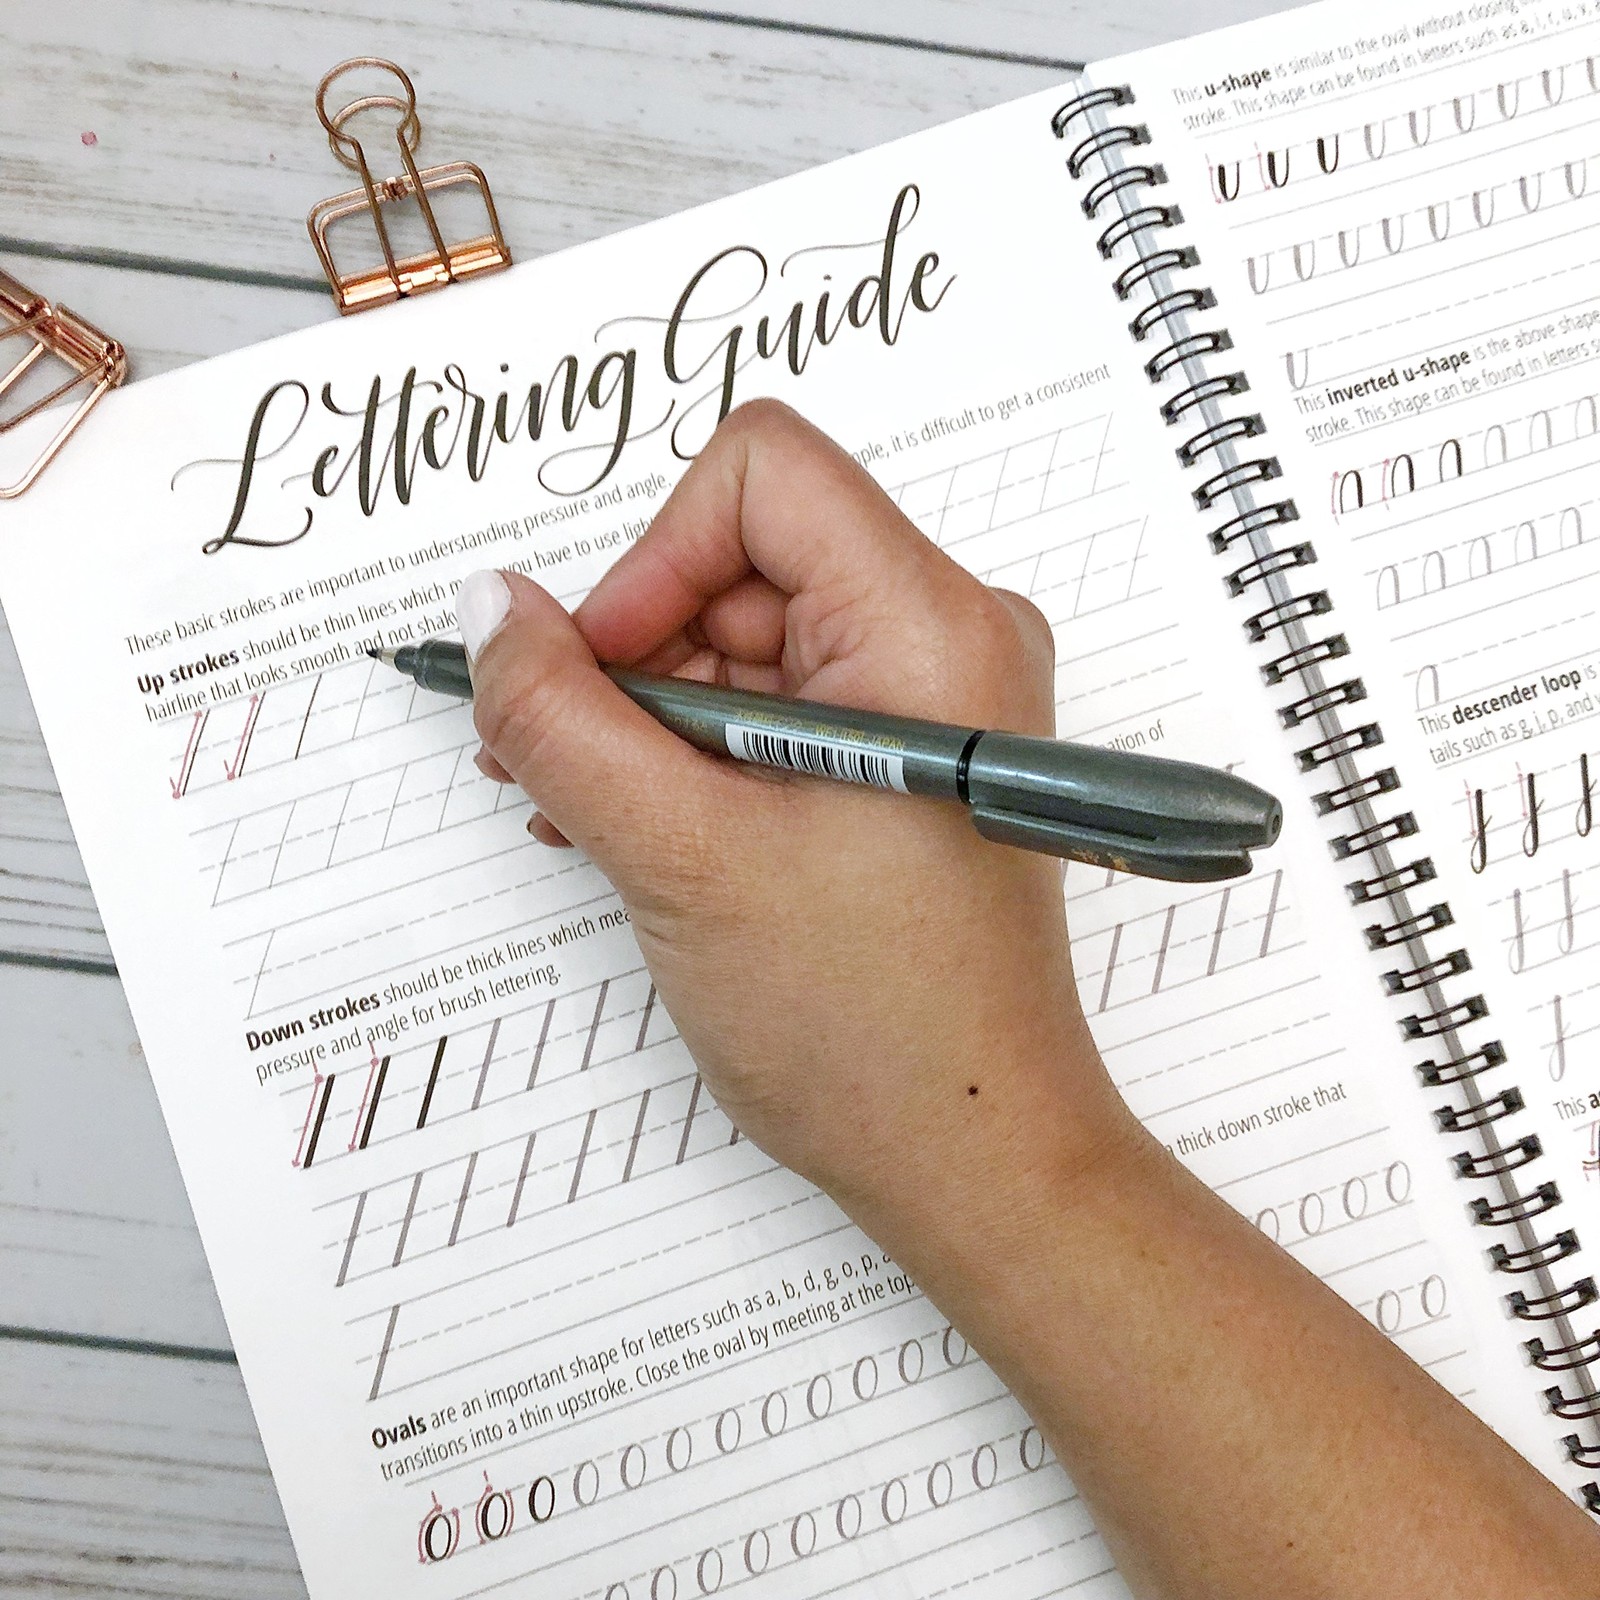 Lettering Guide
These basic strokes are important to understanding pressure and angle.
Up strokes should be thin lines which you have to use ple, it is difficult to get a consistent
hairline that looks smooth and not
Down strokes should be thick lines which ation of
pressure and angle for brush lettering.
Ovals are an important shape for letters such as a, b, d, g, o, p, thick down stroke that
transitions into a thin upstroke. Close the oval by meeting at the top
JAPAN
This u-shape is similar to the oval without closing
stroke. This shape can be found in letters such as a, i, r, u, v,
This inverted u-shape is the above shape
stroke. This shape can be found in letters
This descender loop is
tails such as g, j, p, and
This